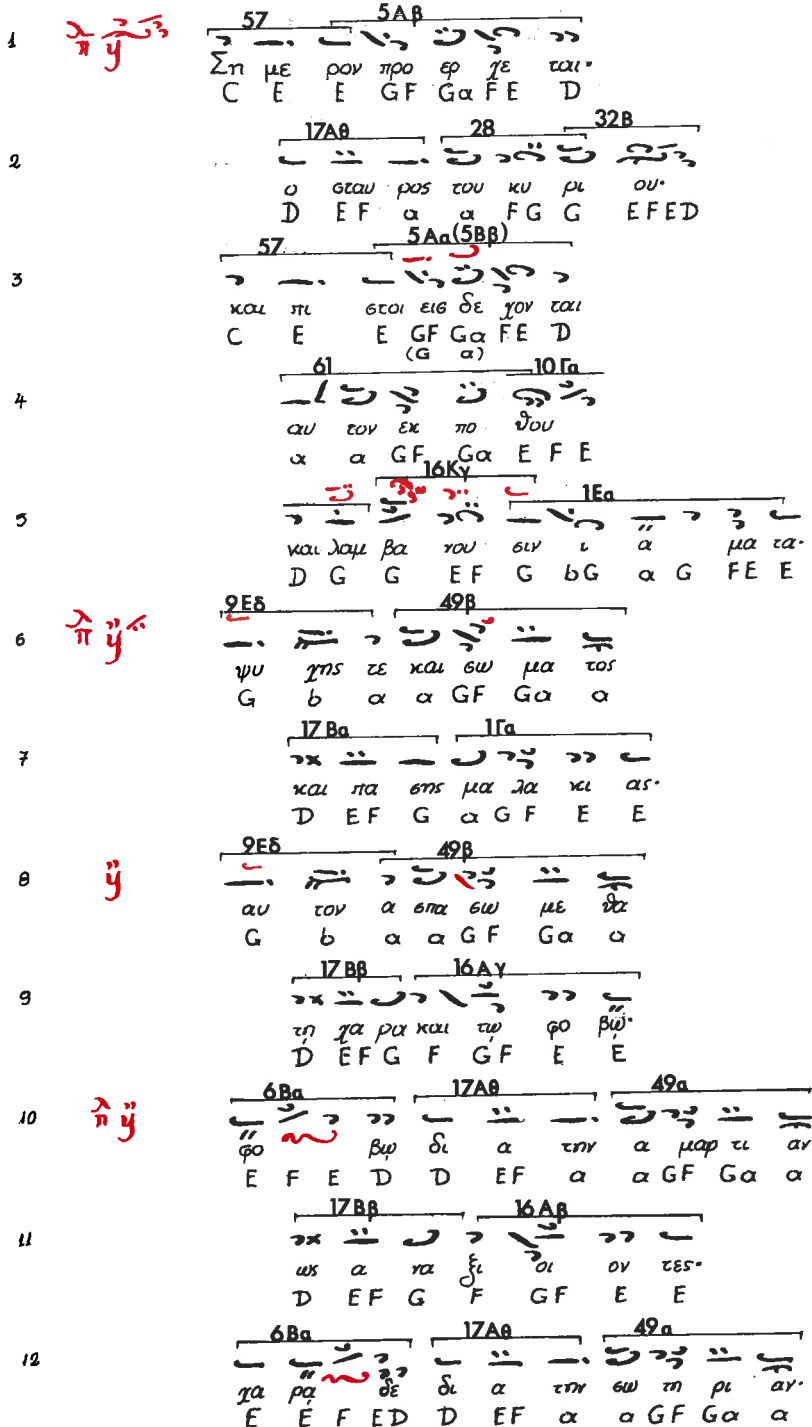 57 5Αβ
1 λ π ÿ
Ση με ρον προ ερ χε ται·
C E E GF Gα FE D
17Αθ 28 32Β
2
ο σταυ ρος του κυ ρι ου·
D EF α α FG G EFED
57 5Αα(5Ββ)
3
και πι στοι εις δε χον ται
C E E GF Gα FE D
(G α)
61 10Γα
4
αυ τον εκ πο θου
α α GF Gα E F E
16Κγ 1Εα
5
και λαμ βα νου σιν ι α μα τα·
D G G EF G bG α G FE E
9Εδ 49β
6 λ π ÿ
ψυ χης τε και σω μα τος
G b α α GF Gα α
17Βα 1Γα
7
και πα σης μα λα κι ας·
D EF G α GF E E
9Εδ 49β
8 ÿ
αυ τον α σπα σω με θα
G b α α GF Gα α
17Ββ 16Αγ
9
τῃ χα ρα και τῳ φο βῳ·
D EF G F GF E E
6Βα 17Αθ 49α
10 λ π ÿ
φο βῳ δι α την α μαρ τι αν
E F E D D EF α α GF Gα α
17Ββ 16Αβ
11
ως α να ξι οι ον τες·
D EF G F GF E E
6Βα 17Αθ 49α
12
χα ρᾳ δε δι α την σω τη ρι αν·
E E F ED D EF α α GF Gα α